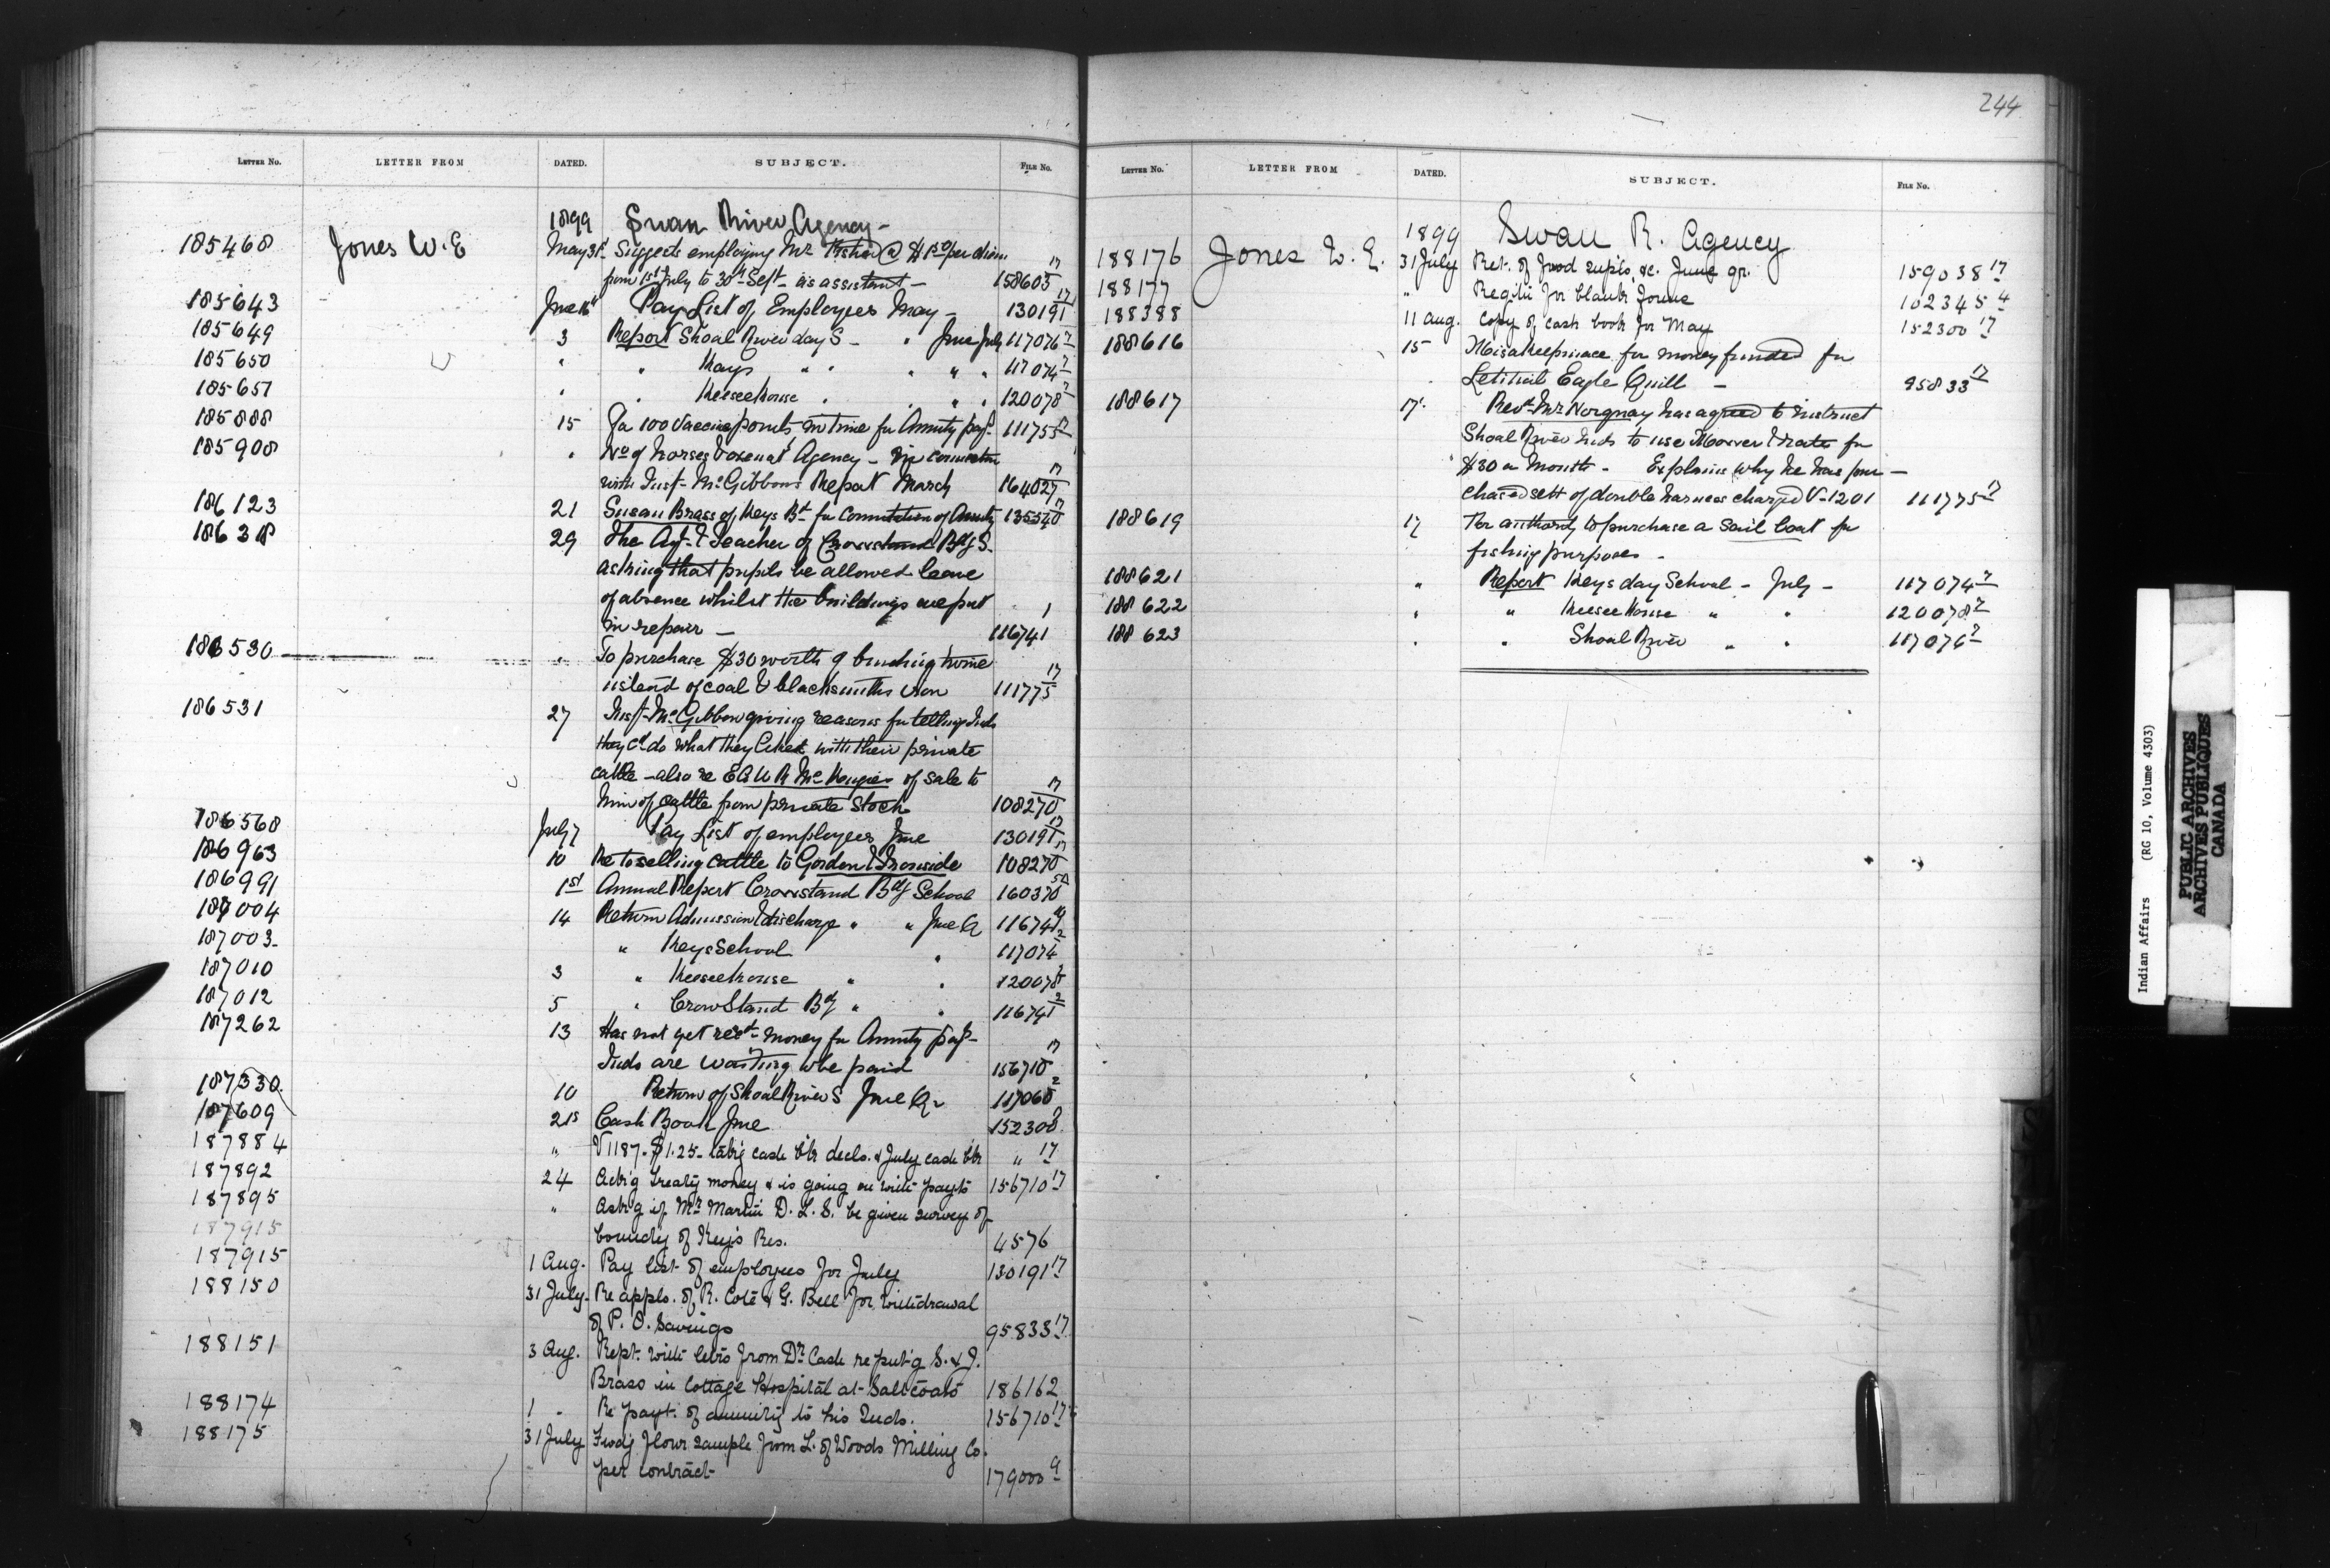 LETTER No. LETTER FROM DATED. SUBJECT. FILE No.
1899 Swan River Agency -
185468 Jones W. E May 31st Suggests employing Mr @ $1.50 per diem
from 1st July to 30th Sept - as assistant - 158605 17
185643 June Pay List of Employees May - 130191 17
185649 3 Report Shoal River day S - " June July 117076 2
185650 " " Keys " " " " " 117074 2
185651 " " Keeseekouse " " " " 120078 2
185888 15 100 Vaccine points in time for Annuity payt 111755 17
185908 " No of horses & oxen at Agency - in connection
with Insp- McGibbons Report March 164027 17
186123 21 Susan Brass of Keys Bd for Commutation of Annuity 135540 17
186318 29 The Agt & Teacher of Crowstand Bdg S.
asking that pupils be allowed leave
of absence whilst the buildings are put
in repair - 116741 1
186530 " To purchase $30 worth of binding twine
instead of coal & blacksmiths iron 111775 17
186531 27 Insp- McGibbon giving reasons for telling Inds
they cd do what they liked with their private
cattle - also re of sale to
him of cattle from private stock 108270 17
186568 July 7 Pay List of employees June 130191 17
186963 10 Re to selling cattle to Gordon & Ironside 108270 17
186991 1st Annual Report Crowstand Bdg School 160370
187004 14 Return Admission & discharge " " June Q 116741
187003 " Keys School " 117074 2
187010 3 " Keeseekouse " " 120078 2
187012 5 " Crow Stand Bdg " " 116741 2
187262 13 Has not yet recd- money for Annuity payt-
Inds are waiting to be paid 156710 17
187330 10 Return of Shoal River S June Qr 117060 2
187609 21s Cash Book June 152300
187884 " V1187. $1.25 cash bk decls. & July cash bk " 17
187892 24 Ackg treaty money & is going on with payts 156710 17
187895 " Askg if Mr Martin D. L. S. be given survey of
boundy of Key's Res. 4576
187915
187915 1 Aug. Pay list of employees for July 130191 17
188150 31 July. Re appls. of R. Coté & G. Bell for withdrawal
of P. O. Savings 95833 17
188151 3 Aug. Rept. with letrs from Dr Cash re putg S. & J.
Brass in Cottage Hospital at Saltcoats 186162
188174 1 " Re payt. of annuity to his Inds. 156710 17
188175 31 July Fwdg flour sample from L. of Woods Milling Co.
per contract 179000 9
244
LETTER No. LETTER FROM DATED. SUBJECT. FILE No.
1899 Swan R. Agency
188176 Jones W. E. 31 July Ret. of food supls. &c. June qr. 159038 17
188177 " Reqtn for blank forms 162345 4
188388 11 Aug. Copy of cash book for May 152300 17
188616 15 for money funded for
Eagle Quill - 95833 17
188617 17 Revd- Mr Norquay has agreed to instruct
Shoal River Inds to use Mower & rake for
$30 a Month - Explains why he has pur-
chased sett of double harness charged V-1201 111775 17
188619 17 For authority to purchase a sail boat for
fishing purposes -
188621 " Report Keys day School - July - 117074 2
188622 " " Keeseekouse " " 120078 2
188623 " " Shoal River " " 117076 2
Indian Affairs (RG 10, Volume 4303)
PUBLIC ARCHIVES
ARCHIVES PUBLIQUES
CANADA